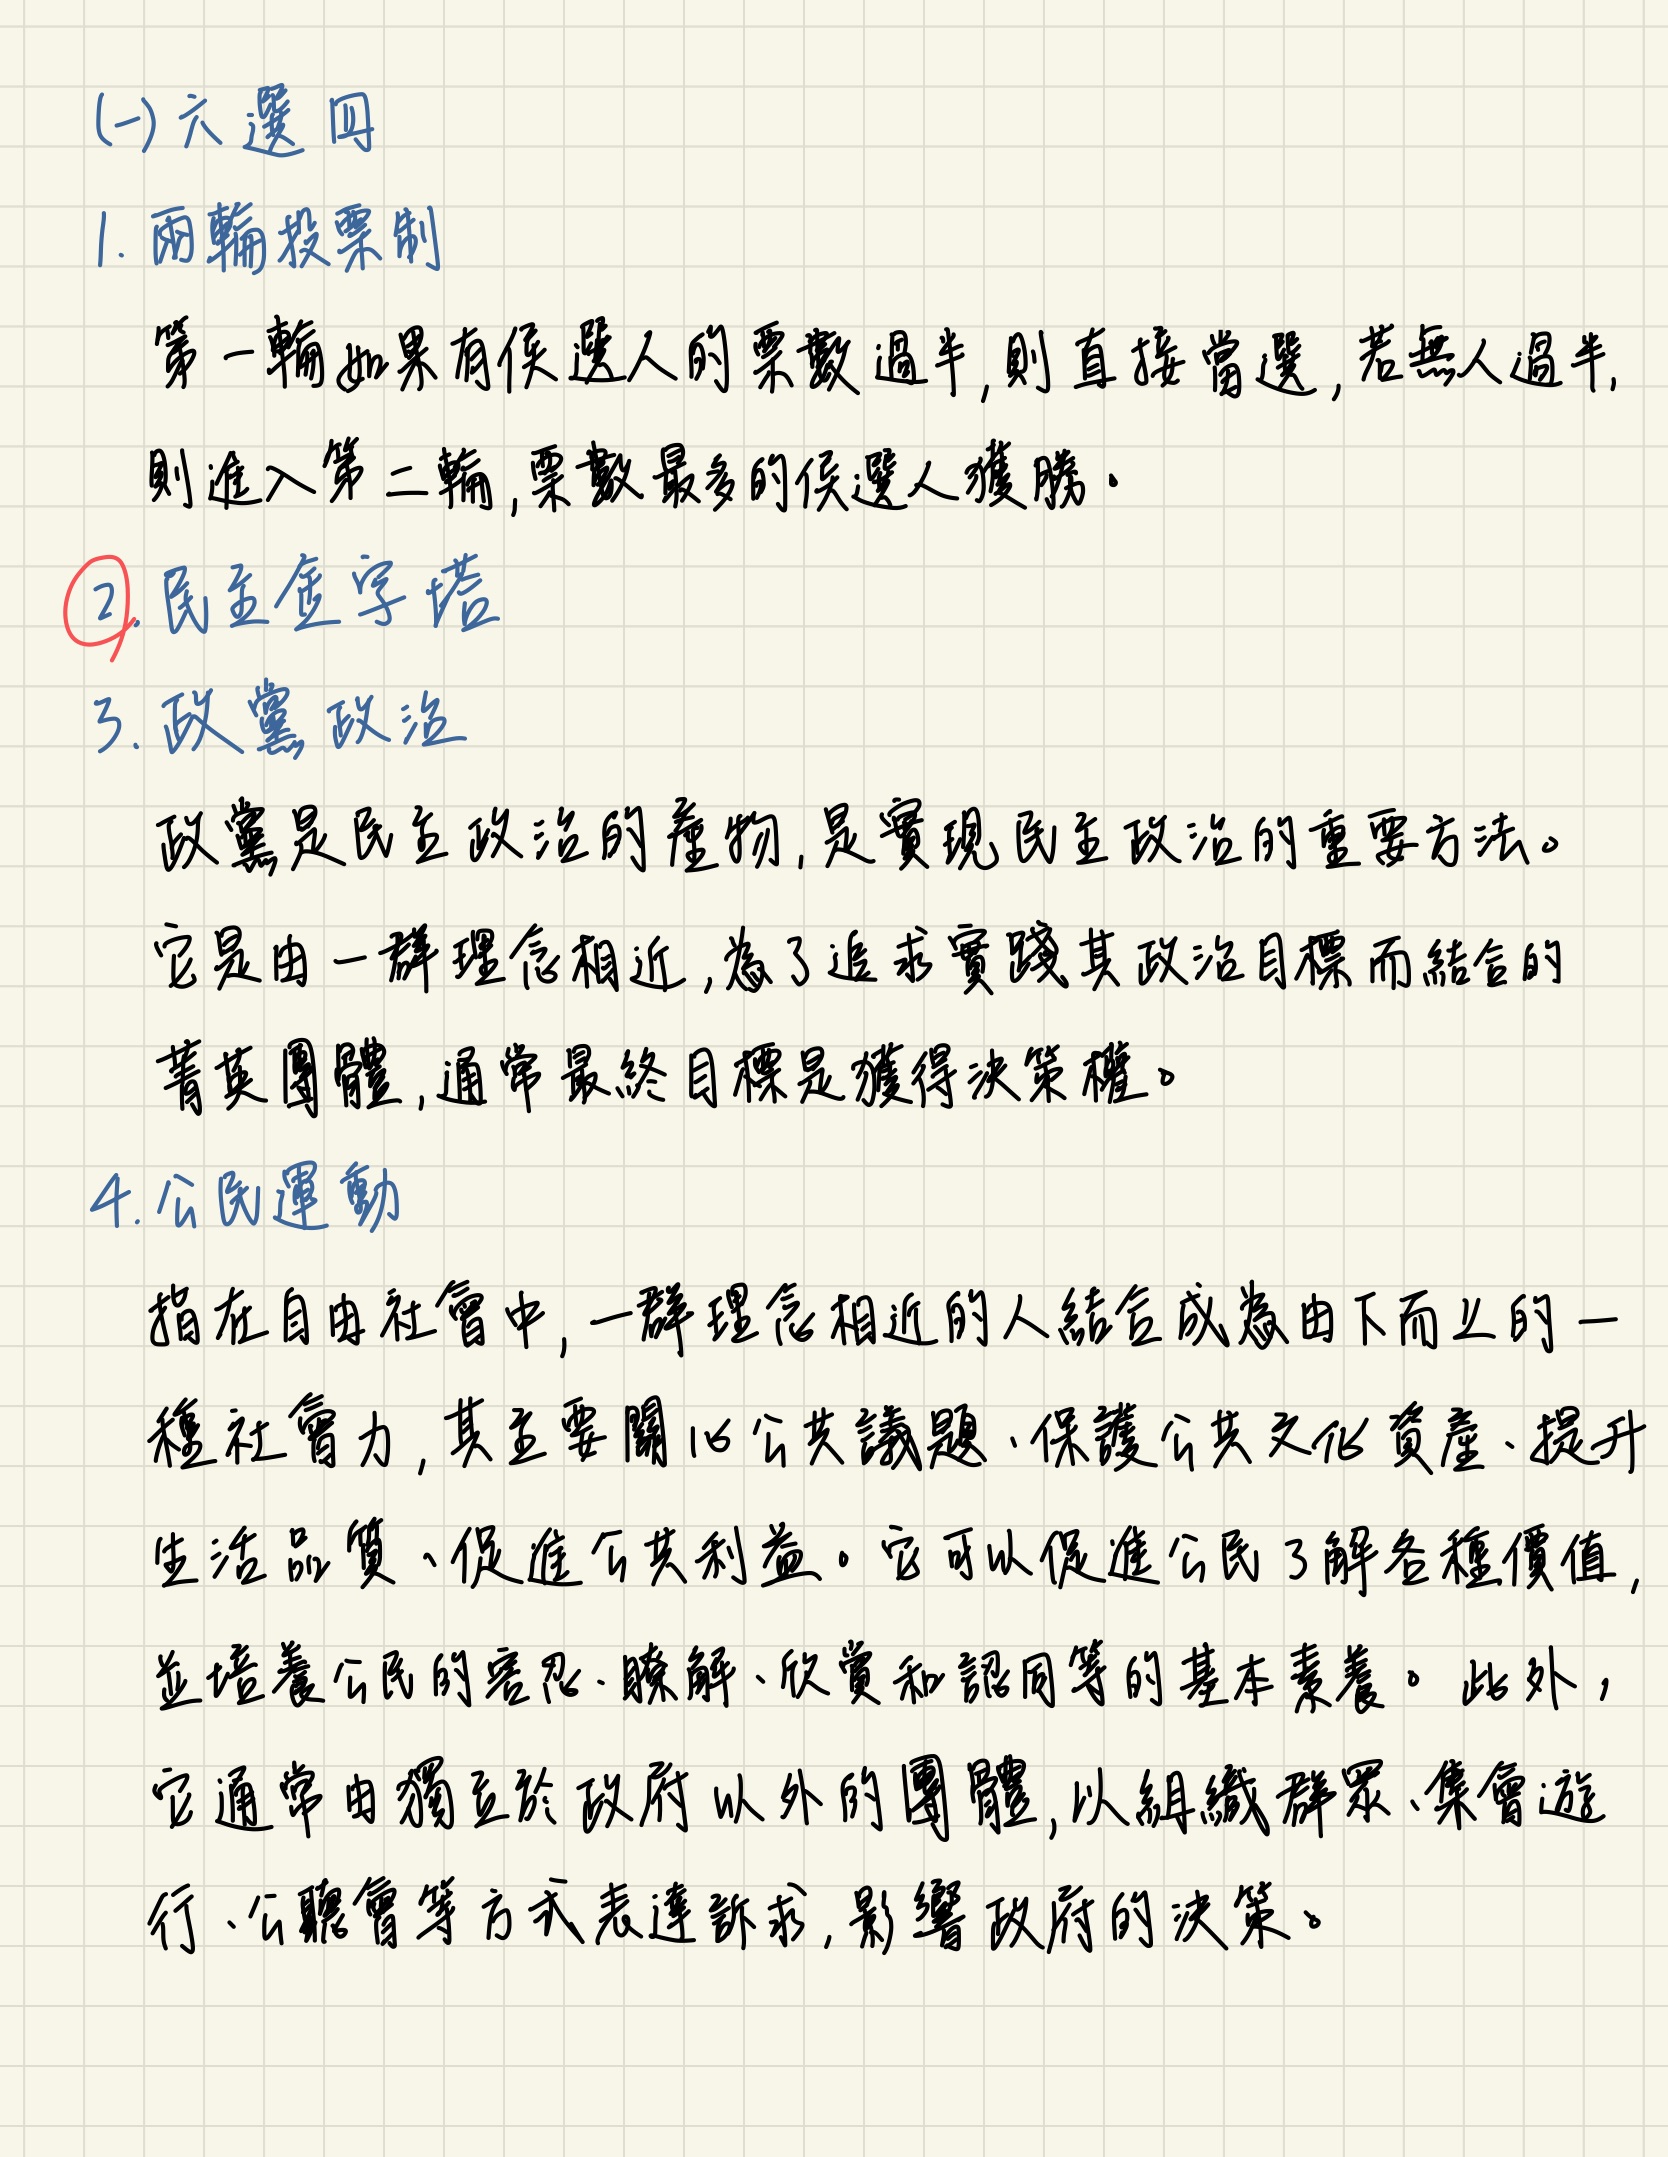 (一)六選四
1.兩輪投票制
第一輪如果有侯選人的票數過半,則直接當選,若無人過半,
則進入第二輪,票數最多的侯選人獲勝.
2.民主金字塔
3.政黨政治
政黨是民主政治的產物,是實現民主政治的重要方法。
它是由一群理念相近,為了追求實踐其政治目標而結合的
菁英團體,通常最終目標是獲得決策權。
4.公民運動
指在自由社會中,一群理念相近的人結合成為由下而上的一
種社會力,其主要關心公共議題、保護公共文化資產、提升
生活品質、促進公共利益。它可以促進公民了解各種價值,
並培養公民的容忍、瞭解、欣賞和認同等的基本素養。此外,
它通常由獨立於政府以外的團體,以組織群眾、集會遊
行、公聽會等方式表達訴求,影響政府的決策。